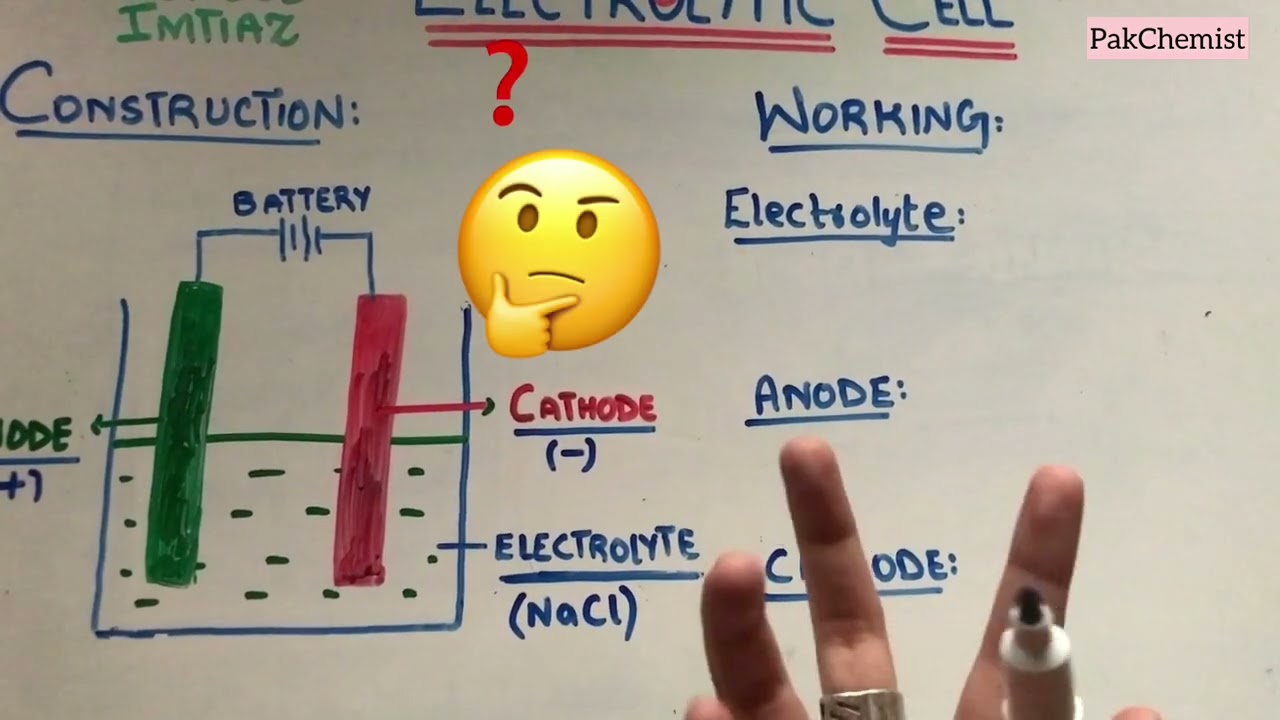 IMTIAZ
ELECTROLYTIC CELL
PakChemist
CONSTRUCTION:
BATTERY
ODE
+)
CATHODE
(-)
ELECTROLYTE
(NaCl)
WORKING:
Electrolyte:
ANODE:
C ODE: